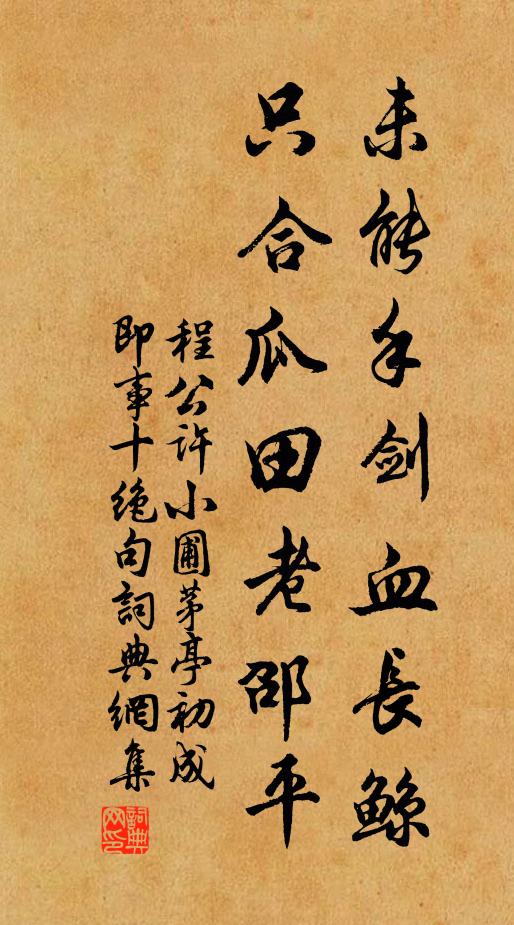 未能手剑血長鲸
只合瓜田老邵平
程公许小圃茅亭初成
即事十绝句詞典網集
詞典
网印